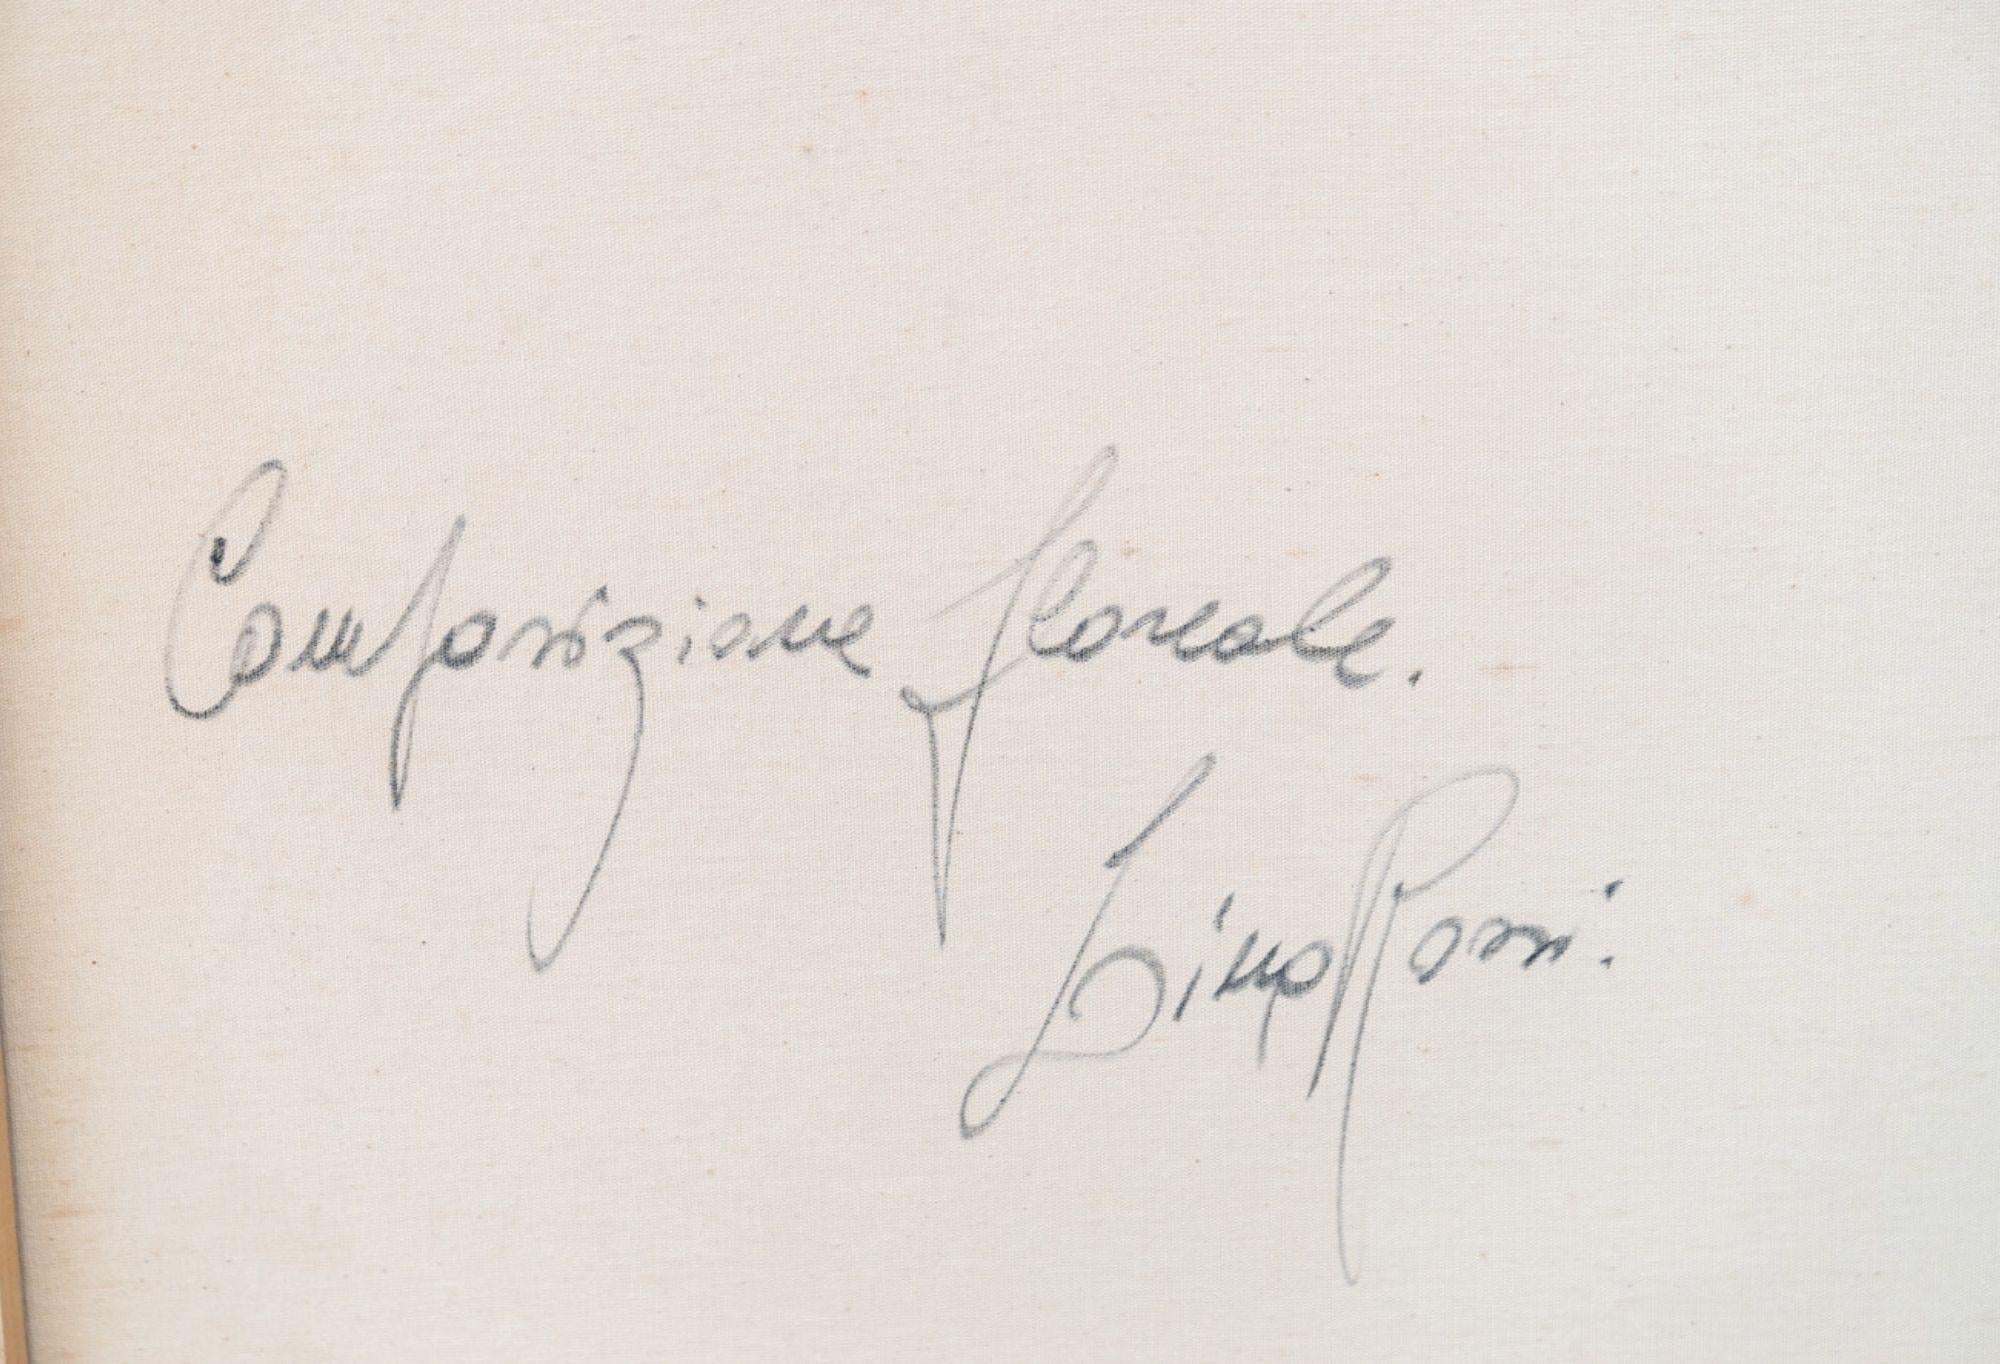 Composizione floreale.
Lino Rossi.